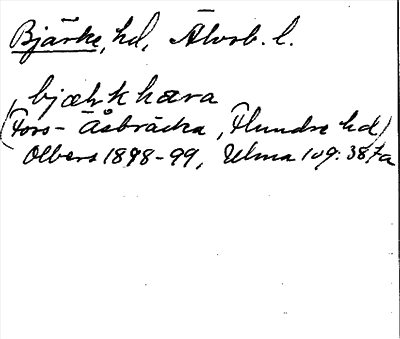 Bjärke, hd, Älvsb. l.
bjæṛkhæra
(Fors-Åsbräcka, Flundre hd)
Olbers 1898-99, Ulma 109:387a